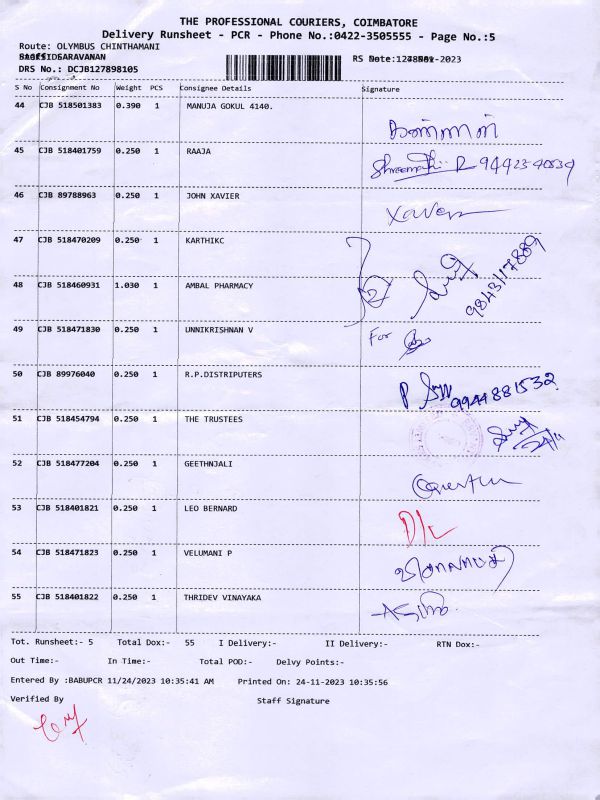 THE PROFESSIONAL COURIERS, COIMBATORE
Delivery Runsheet - PCR - Phone No.:0422-3505555 - Page No.:5
Route: OLYMBUS CHINTHAMANI
SARAVANAN
DRS No.: DCJB127898105
S No Consignment No Weight PCS Consignee Details Signature
44 CJB 518501383 0.390 1 MANUJA GOKUL 4140.
45 CJB 518401759 0.250 1 RAAJA
46 CJB 89788963 0.250 1 JOHN XAVIER
Xavier
47 CJB 518470209 0.250 1 KARTHIKC
9843117889
48 CJB 518460931 1.030 1 AMBAL PHARMACY
2
49 CJB 518471830 0.250 1 UNNIKRISHNAN V
For
50 CJB 89976040 0.250 1 R.P.DISTRIPUTERS
9944881532
51 CJB 518454794 0.250 1 THE TRUSTEES
52 CJB 518477204 0.250 1 GEETHNJALI
53 CJB 518401821 0.250 1 LEO BERNARD
54 CJB 518471823 0.250 1 VELUMANI P
55 CJB 518401822 0.250 1 THRIDEV VINAYAKA
Tot. Runsheet:- 5 Total Dox:- 55 I Delivery:- II Delivery:- RTN Dox:-
Out Time:- In Time:- Total POD:- Delvy Points:-
Entered By :BABUPCR 11/24/2023 10:35:41 AM Printed On: 24-11-2023 10:35:56
Verified By Staff Signature